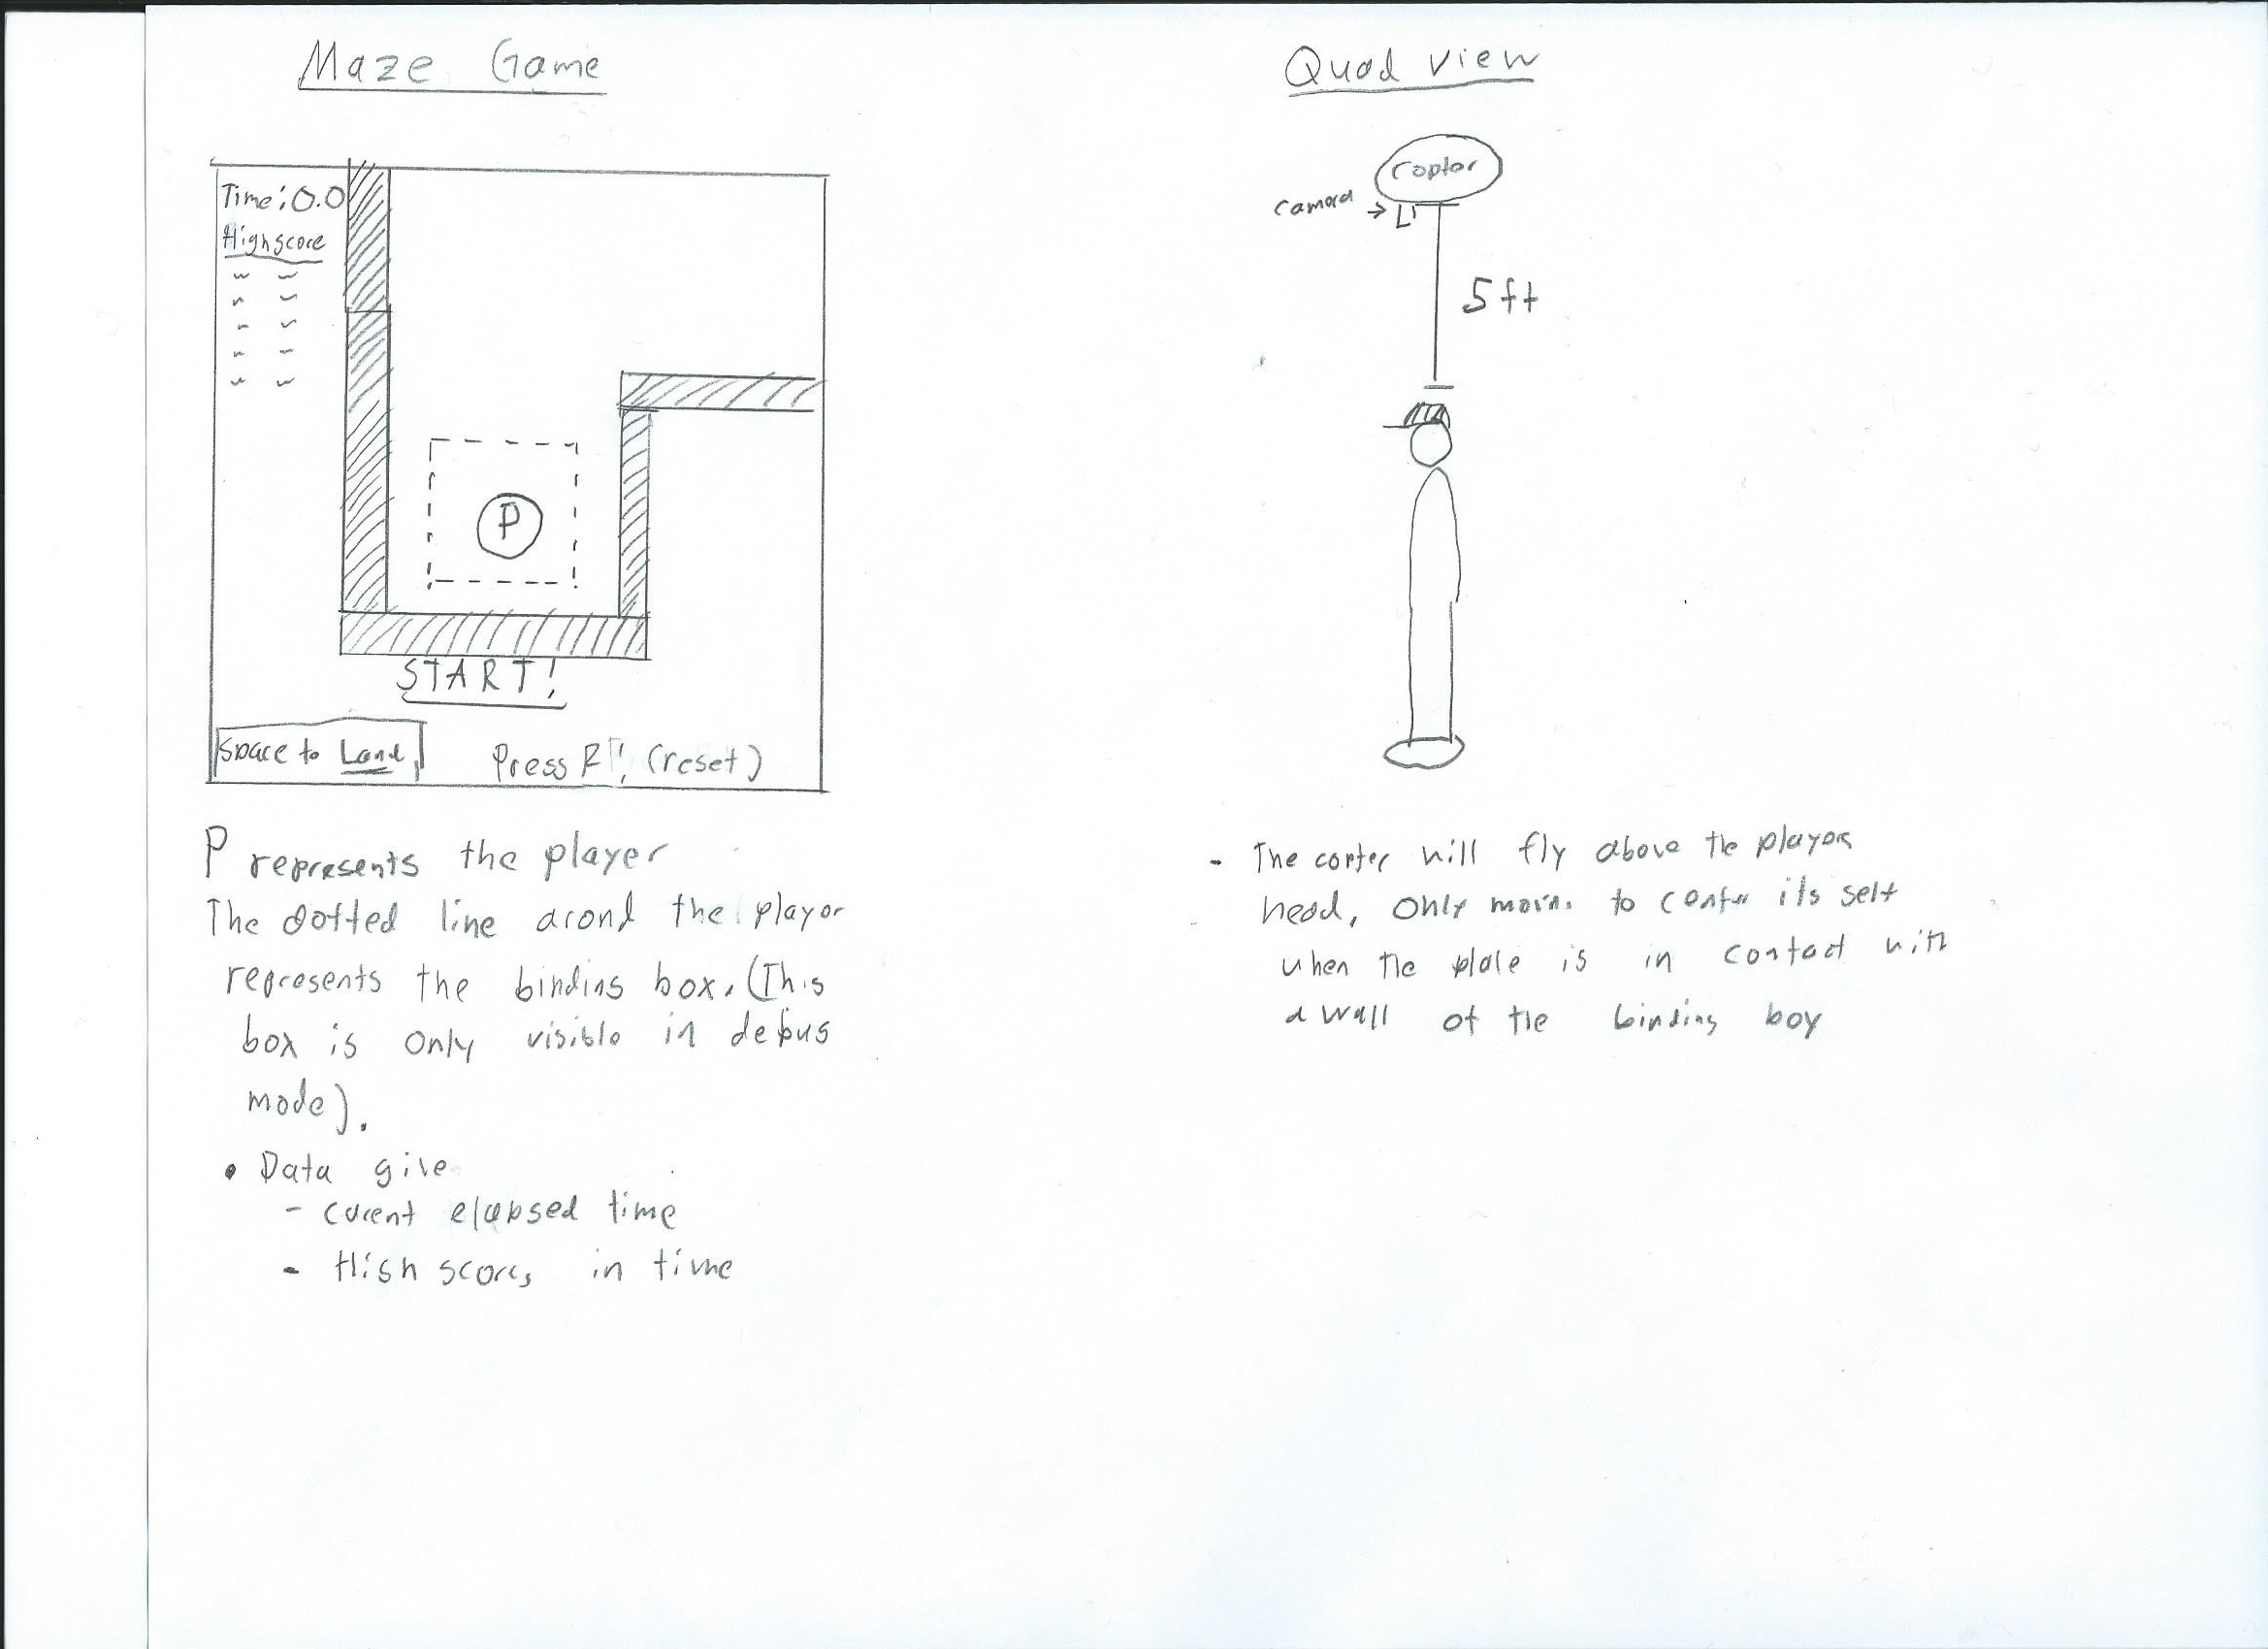 Maze Game
Time: 0.0
Highscore
START!
Space to Land
Press R! (reset)
P represents the player
The dotted line arond the player
represents the binding box. (This
box is only visible in debug
mode).
• Data give
- curent elapsed time
- High scores in time
Quad view
Coptor
camera →
5ft
- The copter will fly above the players
head, only moving to center its self
when the plate is in contact with
a wall of the binding boy